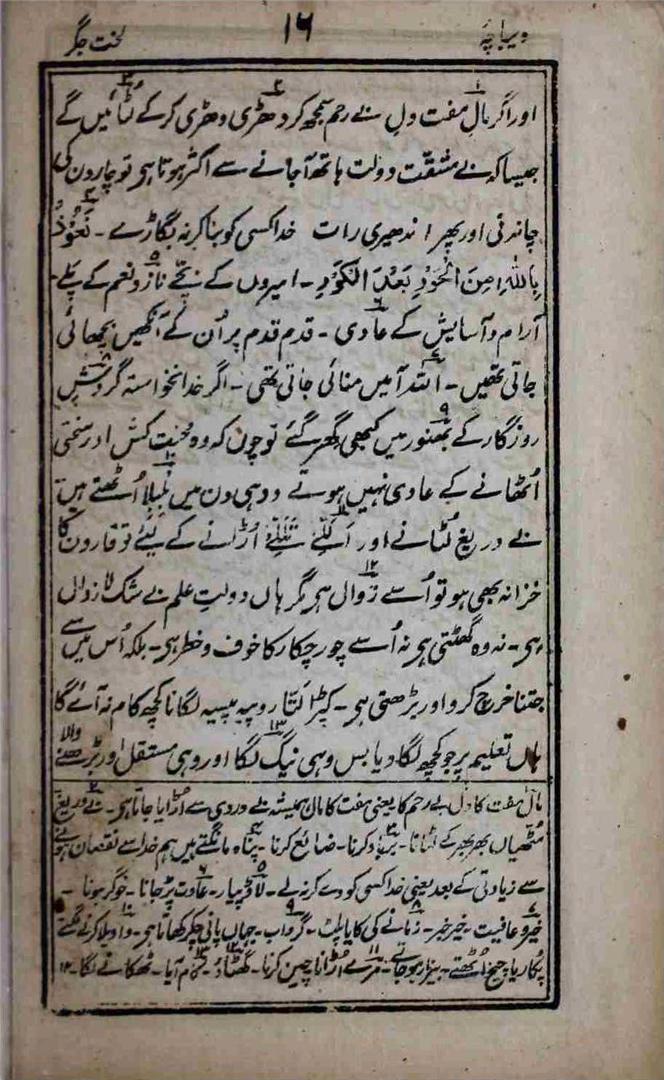 دیباچہ ۱۶ لخت جگر
اور اگر مالِ مفت دلِ بے رحم سمجھ کر دھڑی دھڑی کرکے لُٹائیں گے
جیسا کہ بے مشقّت دولت ہاتھ آجانے سے اکثر ہوتا ہی تو چار دن کی
چاندنی اور پھر اندھیری رات خدا کسی کو بنا کر نہ بگاڑے ۔ نَعُوْذُ
بِاللّٰہِ مِنَ الْحَوْرِ بَعْدَ الْکَوْرِ ۔ امیروں کے بچّے ناز و نعم کے پلے
آرام و آسایش کے عادی ۔ قدم قدم پر اُن کے آنکھیں بچھائی
جاتی تھیں ۔ ابتدا میں منائی جاتی تھی ۔ اگر خدانخواستہ گردشِ
روزگار کے بھنور میں کبھی گھِر گئے تو چون کہ وہ محنت کش اور سختی
اُٹھانے کے عادی نہیں ہوتے دو ہی دن میں بلبلا اُٹھتے ہیں
بے دریغ لُٹانے اور اَللّے تَللّے اُڑانے کے لیئے تو قارون کا
خزانہ بھی ہو تو اُسے زوال ہی مگر ہاں دولتِ علم بے شک لازوال
ہی ۔ نہ وہ گھٹتی ہی نہ اُسے چور چکار کا خوف و خطر ہی ۔ بلکہ اُس میں سے
جتنا خرچ کرو اور بڑھتی ہی ۔ کپڑا لتّا روپیہ پیسہ لگانا کچھ کام نہ آئے گا
ہاں تعلیم پر جو کچھ لگا دیا بس وہی نیگ لگا اور وہی مستقل اور بڑھنے والا
مالِ مفت کا دل بے رحم کا یعنی مفت کا مال ہمیشہ بے دردی سے اُڑایا جاتا ہی ۔ بے دریغ
مٹھیاں بھر بھر کے لٹانا ۔ برباد کرنا ۔ ضائع کرنا ۔ پناہ مانگتے ہیں ہم خدا سے نقصان ہونے
سے زیادتی کے بعد یعنی خدا کسی کو دے کر نہ لے ۔ لاڈ پیار ۔ عادت پڑ جانا ۔ خوگر ہونا ۔
خیر و عافیت ۔ خیر خیر ۔ زمانے کی کایا پلٹ ۔ گرداب ۔ جہاں پانی چکر کھاتا ہی ۔ واویلا کرنے لگتے
پکار یا چیخ اُٹھتے ۔ بیزار ہوجاتے ۔ مزے اُڑانا چین کرنا ۔ گھٹاؤ ۔ کام آیا ۔ ٹھکانے لگا ۔ ۱۲